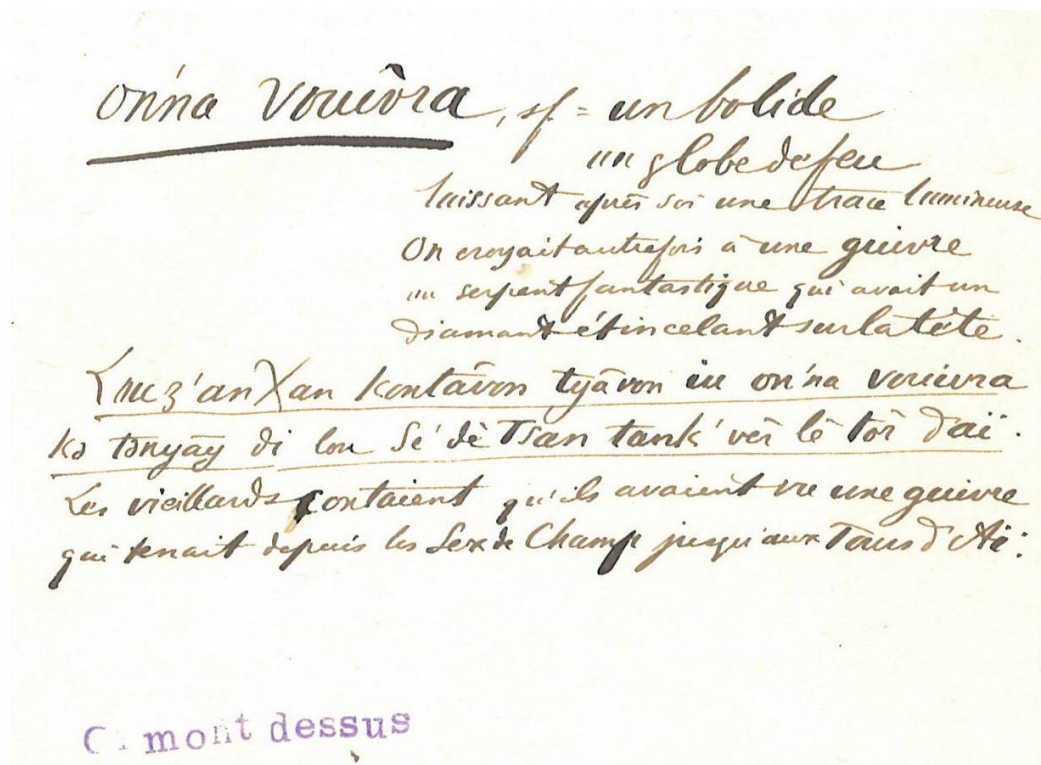 on'na vouivra, sf = un bolide
un globe de feu
laissant après soi une trace lumineuse
On croyait autrefois à une guivre
un serpent fantastique qui avait un
diamant étincelant sur la tête.
kontâvon tyâvon iu on'na vouivra
kə tənyäy di lou Sé dè Tsan tank' vêr lè tör d'aï.
Les vieillards contaient qu'ils avaient vu une guivre
qui tenait depuis les Sex de Champ jusqu'aux Tours d'Aï.
mont dessus